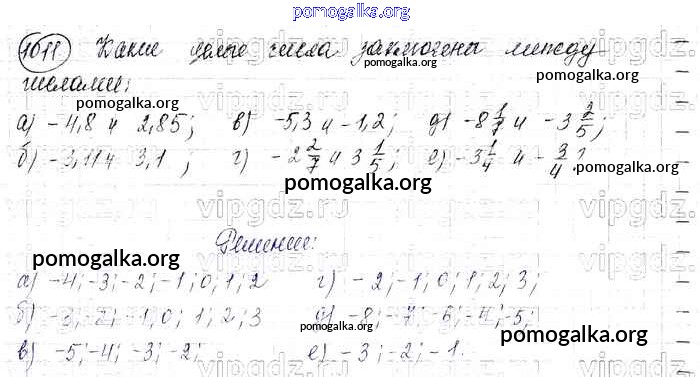 pomogalka.org
1011 Какие целые числа заключены между
pomogalka.org
числами: pomogalka.org
pomogalka.org
а) -4,8 и 2,85; в) -5,3 и -1,2; д) -8 1/7 и -3 2/5;
pomogalka.org
б) -3,11 и 3,1; г) -2 2/7 и 3 1/5; е) -3 1/4 и -3/4?
pomogalka.org
pomogalka.org
vipgdz.ru
Решение:
pomogalka.org
pomogalka.org
а) -4; -3; -2; -1; 0; 1; 2 г) -2; -1; 0; 1; 2; 3;
pomogalka.org
б) -3; -2; -1; 0; 1; 2; 3 д) -8; -7; -6; -5;
pomogalka.org
в) -5; -4; -3; -2; е) -3; -2; -1.